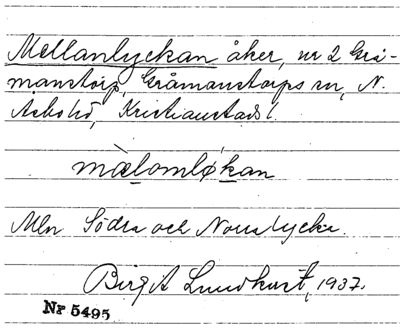 Mellanlyckan åker, nr 2 Grå-
manstorp, Gråmanstorps sn, N.
Åsbo hd, Kristianstads l.
mælomløkan
Mln Södra och Norra lycka.
Birgit Lundkvist, 1937.
Nr 5495